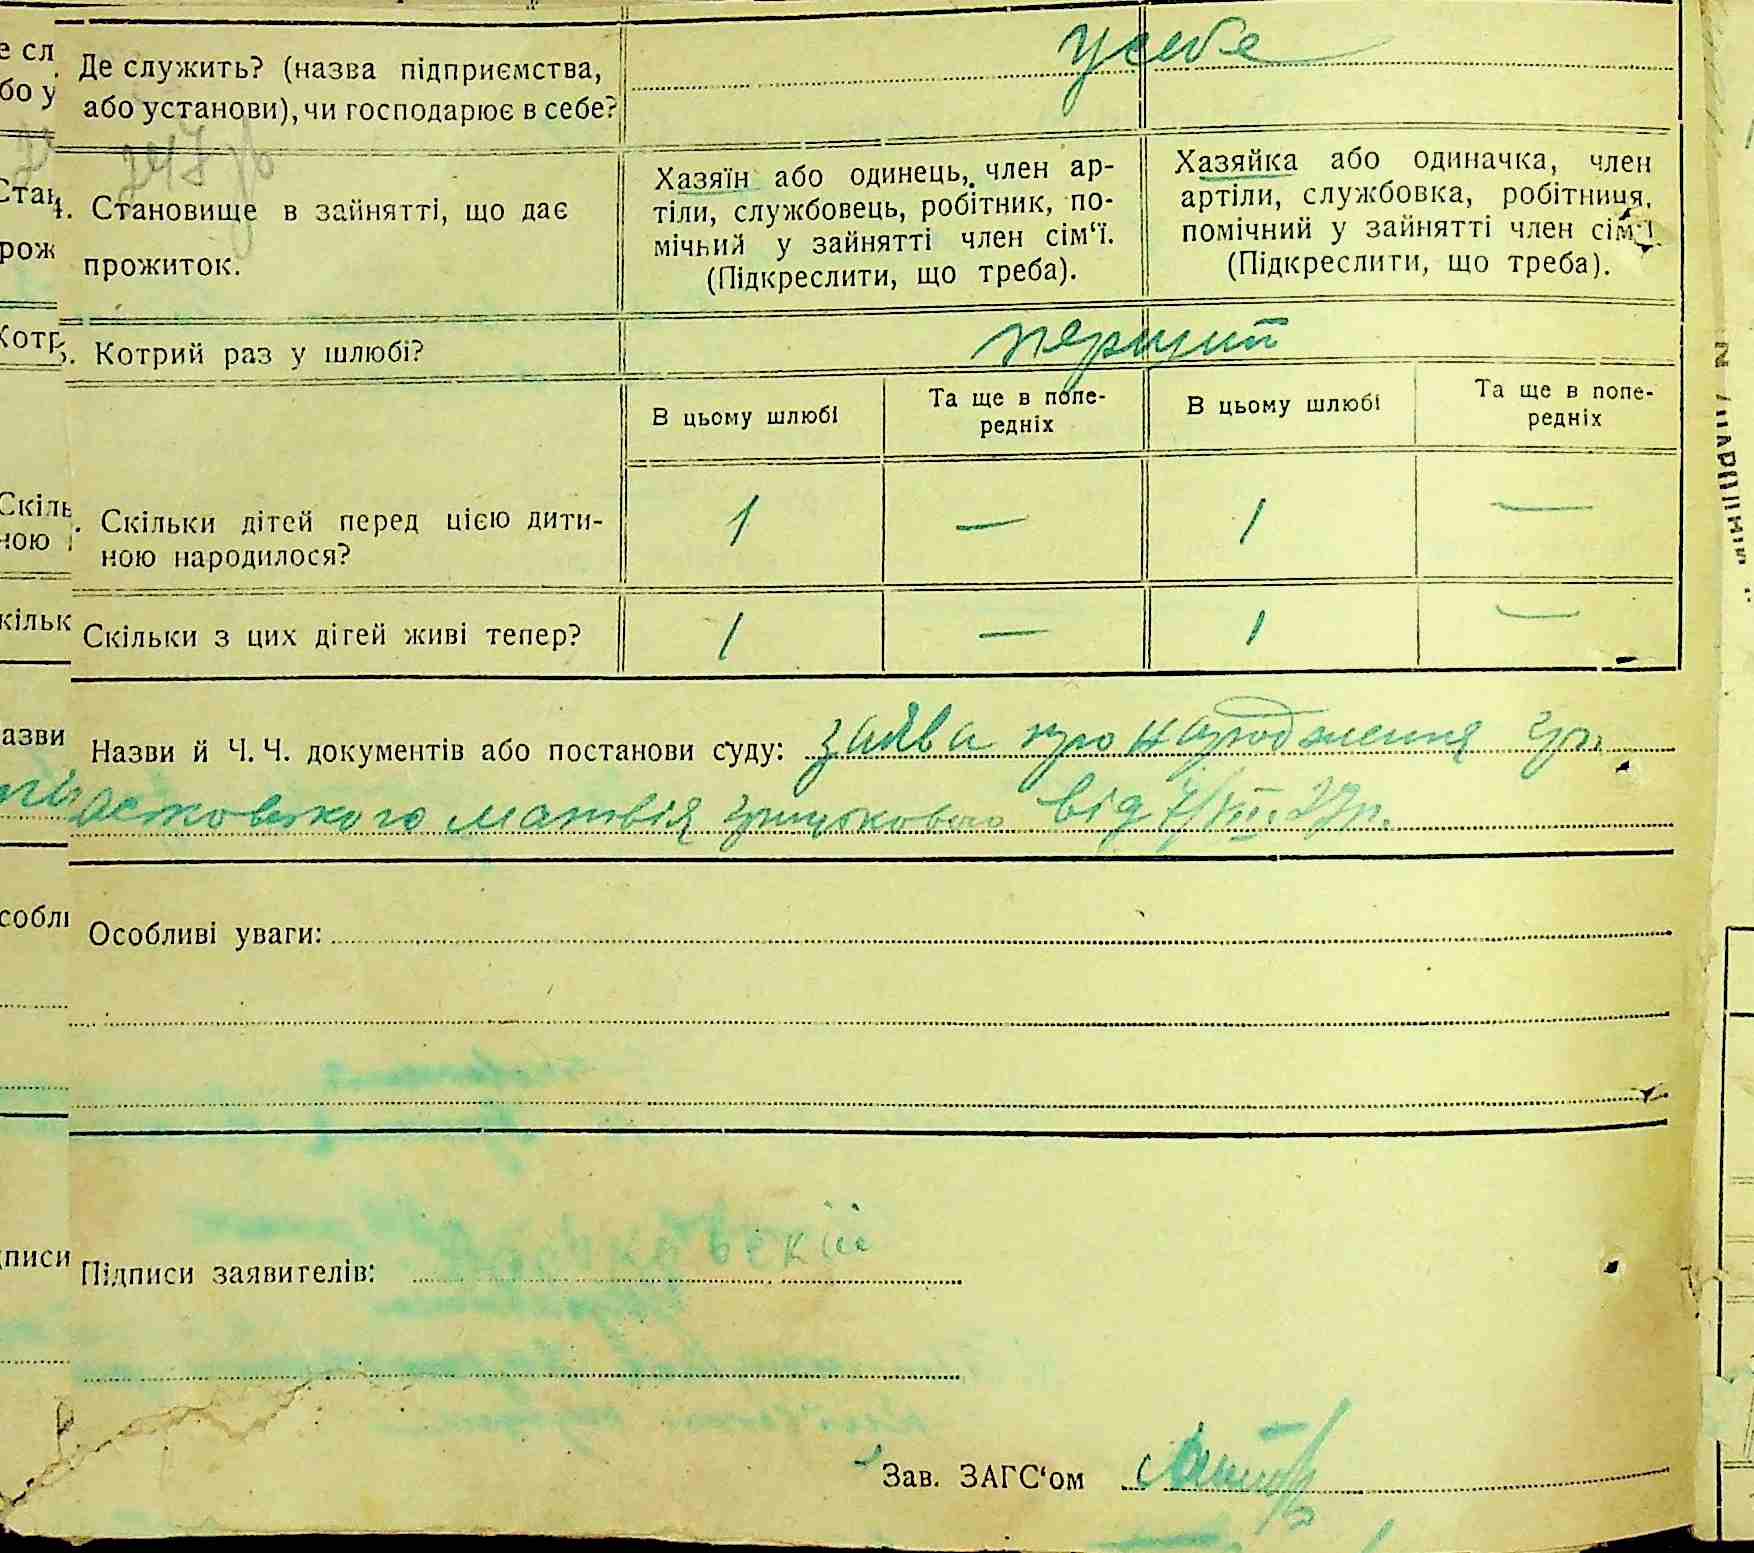 Де служить? (назва підприємства, або установи), чи господарює в себе?
у себе
247
Становище в зайнятті, що дає прожиток.
Хазяїн або одинець, член ар-
тіли, службовець, робітник, по-
мічний у зайнятті член сім‘ї.
(Підкреслити, що треба).
Хазяйка або одиначка, член
артіли, службовка, робітниця,
помічний у зайнятті член сім‘ї
(Підкреслити, що треба).
Котрий раз у шлюбі?
перший
В цьому шлюбі
Та ще в попе-
редніх
В цьому шлюбі
Та ще в попе-
редніх
Скільки дітей перед цією дити-
ною народилося?
1 — 1 —
Скільки з цих дітей живі тепер?
1 — 1 —
Назви й Ч. Ч. документів або постанови суду: заява про народження гр.
Матвія від 7/VII. 27р.
Особливі уваги:
Підписи заявителів:
Зав. ЗАГС‘ом